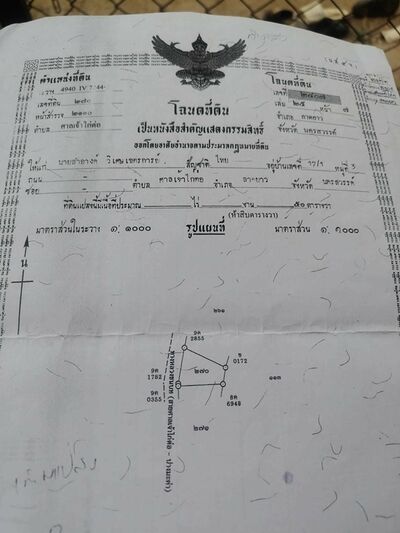 ตำแหน่งที่ดิน
ระวาง 4940 IV 7844-
เลขที่ดิน ๒๗๐
หน้าสำรวจ ๒๑๐๐
ตำบล ศาลเจ้าไก่ต่อ
โฉนดที่ดิน
เลขที่
เล่ม ๒๕ หน้า ๗
อำเภอ ลาดยาว
จังหวัด นครสวรรค์
โฉนดที่ดิน
เป็นหนังสือสำคัญแสดงกรรมสิทธิ์
ออกโดยอาศัยอำนาจตามประมวลกฎหมายที่ดิน
ให้แก่ นายสำอางค์ วิเศษเขตรการณ์ สัญชาติ ไทย อยู่บ้านเลขที่ ๖๖/๑ หมู่ที่ ๓
ถนน ตำบล ศาลเจ้าไก่ต่อ อำเภอ ลาดยาว จังหวัด นครสวรรค์
ซอย
ที่ดินแปลงนี้มีเนื้อที่ประมาณ ไร่ งาน ๕๐ ตารางวา
(ห้าสิบตารางวา)
มาตราส่วนในระวาง ๑: ๑๐๐๐ รูปแผนที่ มาตราส่วน ๑: ๑๐๐๐
น
๒๖๑
9ค
2855
ข
0172
๒๗๐
๑๑๓
9ค
1782
9ค
0355
8ค
6948
๒๗๑
ทางหลวงชนบท (สายศาลเจ้าไก่ต่อ -